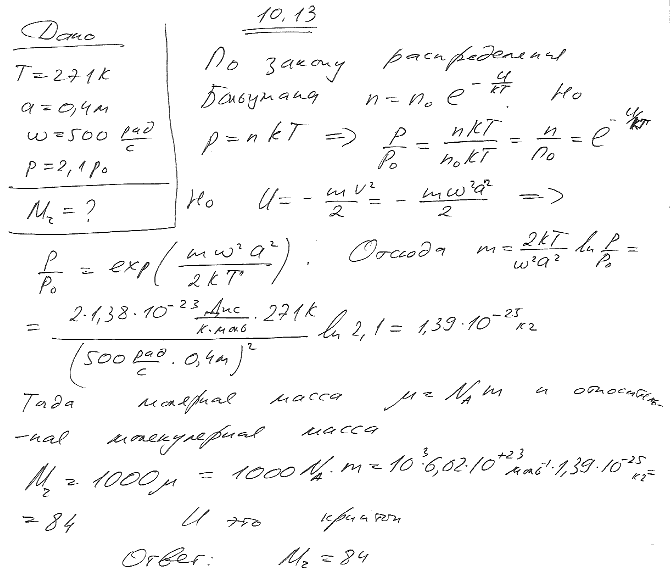 10.13
Дано
T = 271 К
a = 0,4 м
ω = 500 рад/с
p = 2,1 p₀
M_r = ?
По закону распределения
Больцмана n = n₀ e^(-U/kT). Но
p = n k T => p/p₀ = nkT/n₀kT = n/n₀ = e^(-U/kT)
Но U = - mv²/2 = - mω²a²/2 =>
p/p₀ = exp(mω²a²/2kT). Отсюда m = 2kT/ω²a² ln p/p₀ =
= (2·1,38·10^(-23) Дж/К·моль · 271 К)/(500 рад/с · 0,4 м)² ln 2,1 = 1,39·10^(-25) кг
Тогда молярная масса μ = N_A m и относитель-
-ная молекулярная масса
M_r = 1000 μ = 1000 N_A · m = 10³·6,02·10^(+23) моль⁻¹·1,39·10^(-25) кг =
= 84 И это криптон
Ответ: M_r = 84